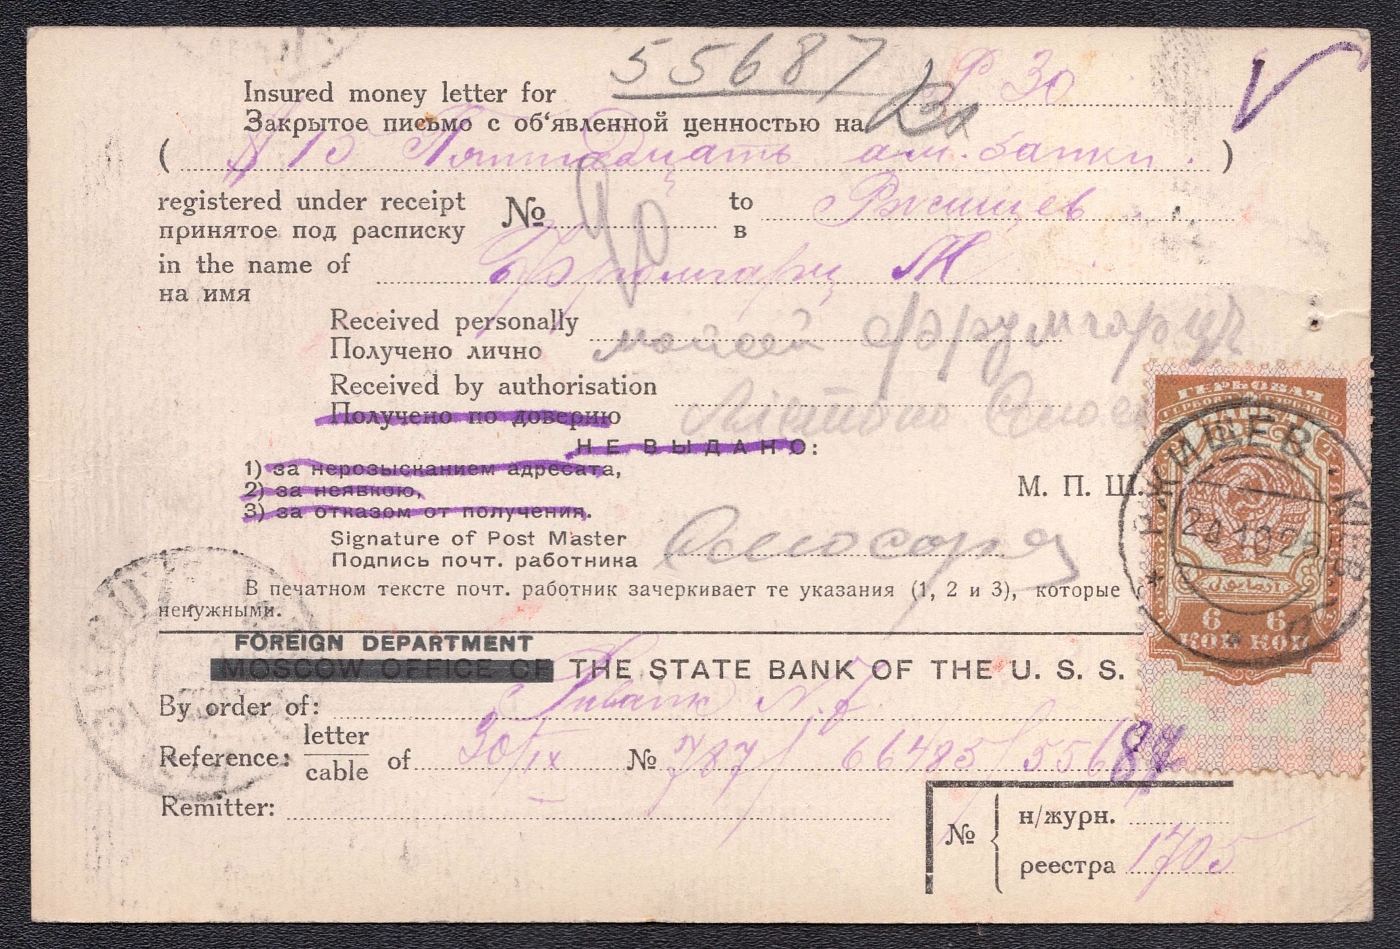 55687
Insured money letter for Р 30
Закрытое письмо с об'явленной ценностью на
( $ 15 Пятнадцать ам. банкн. )
registered under receipt № to Ржищев
принятое под расписку в
in the name of Фрумгарц М
на имя
Received personally Мойсей Фрумгарц
Получено лично
Received by authorisation
Получено по доверию
НЕ ВЫДАНО:
1) за нерозысканием адресата,
2) за неявкою,
3) за отказом от получения.
М. П. Ш.
Signature of Post Master
Подпись почт. работника
В печатном тексте почт. работник зачеркивает те указания (1, 2 и 3), которые
ненужными.
FOREIGN DEPARTMENT
MOSCOW OFFICE OF THE STATE BANK OF THE U. S. S.
By order of:
Reference: letter/cable of 30/IX № 787/ 66485/55687
Remitter:
№ { н/журн.
реестра 1705
ГЕРБОВАЯ
МАРКА
РЖИЩЕВ
24.10.25
6 6
КОП КОП